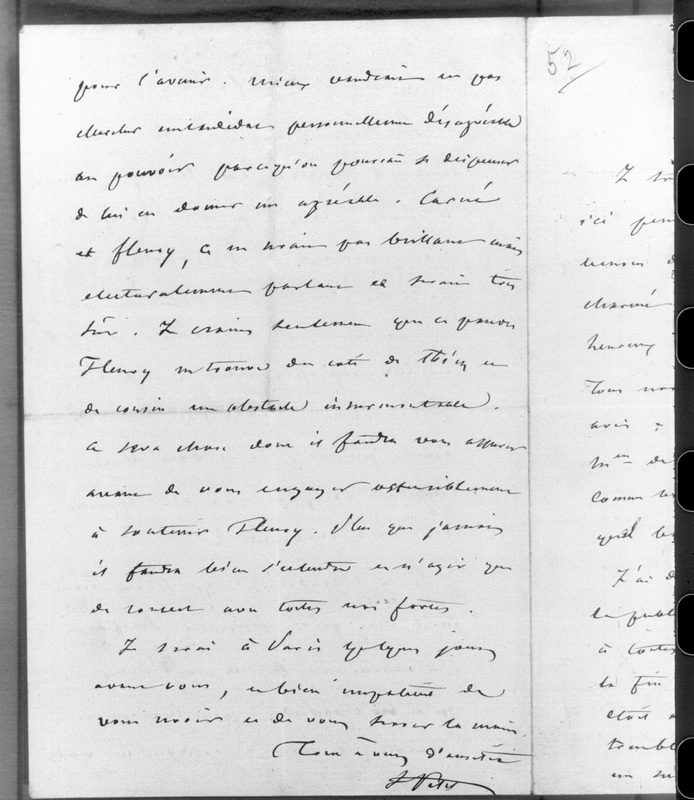 pour l'avenir. Mieux vaudrait ne pas
chercher un candidat personnellement désagréable
au pouvoir parce qu'on pourrait se dispenser
de lui en donner un agréable. Carné
et Fleury, ce ne serait pas brillant mais
électoralement parlant ce serait très
sûr. Je crains seulement que ce pauvre
Fleury ne trouve du côté de et
de cousin un obstacle insurmontable.
Ce sera chose dont il faudra vous assurer
avant de vous engager ostensiblement
à soutenir Fleury. Plus que jamais
il faudra bien s'entendre et n'agir que
de concert avec toutes nos forces.
Je serai à Paris quelques jours
avant vous, et bien impatient de
vous revoir et de vous serrer la main.
Tout à vous d'amitié
52
Je
ici
besoin d
charmé
heureux
Tous nos
avis
Mme de
comme
quel les
J'ai d
le publ
à toutes
la fin
était
trembl
un